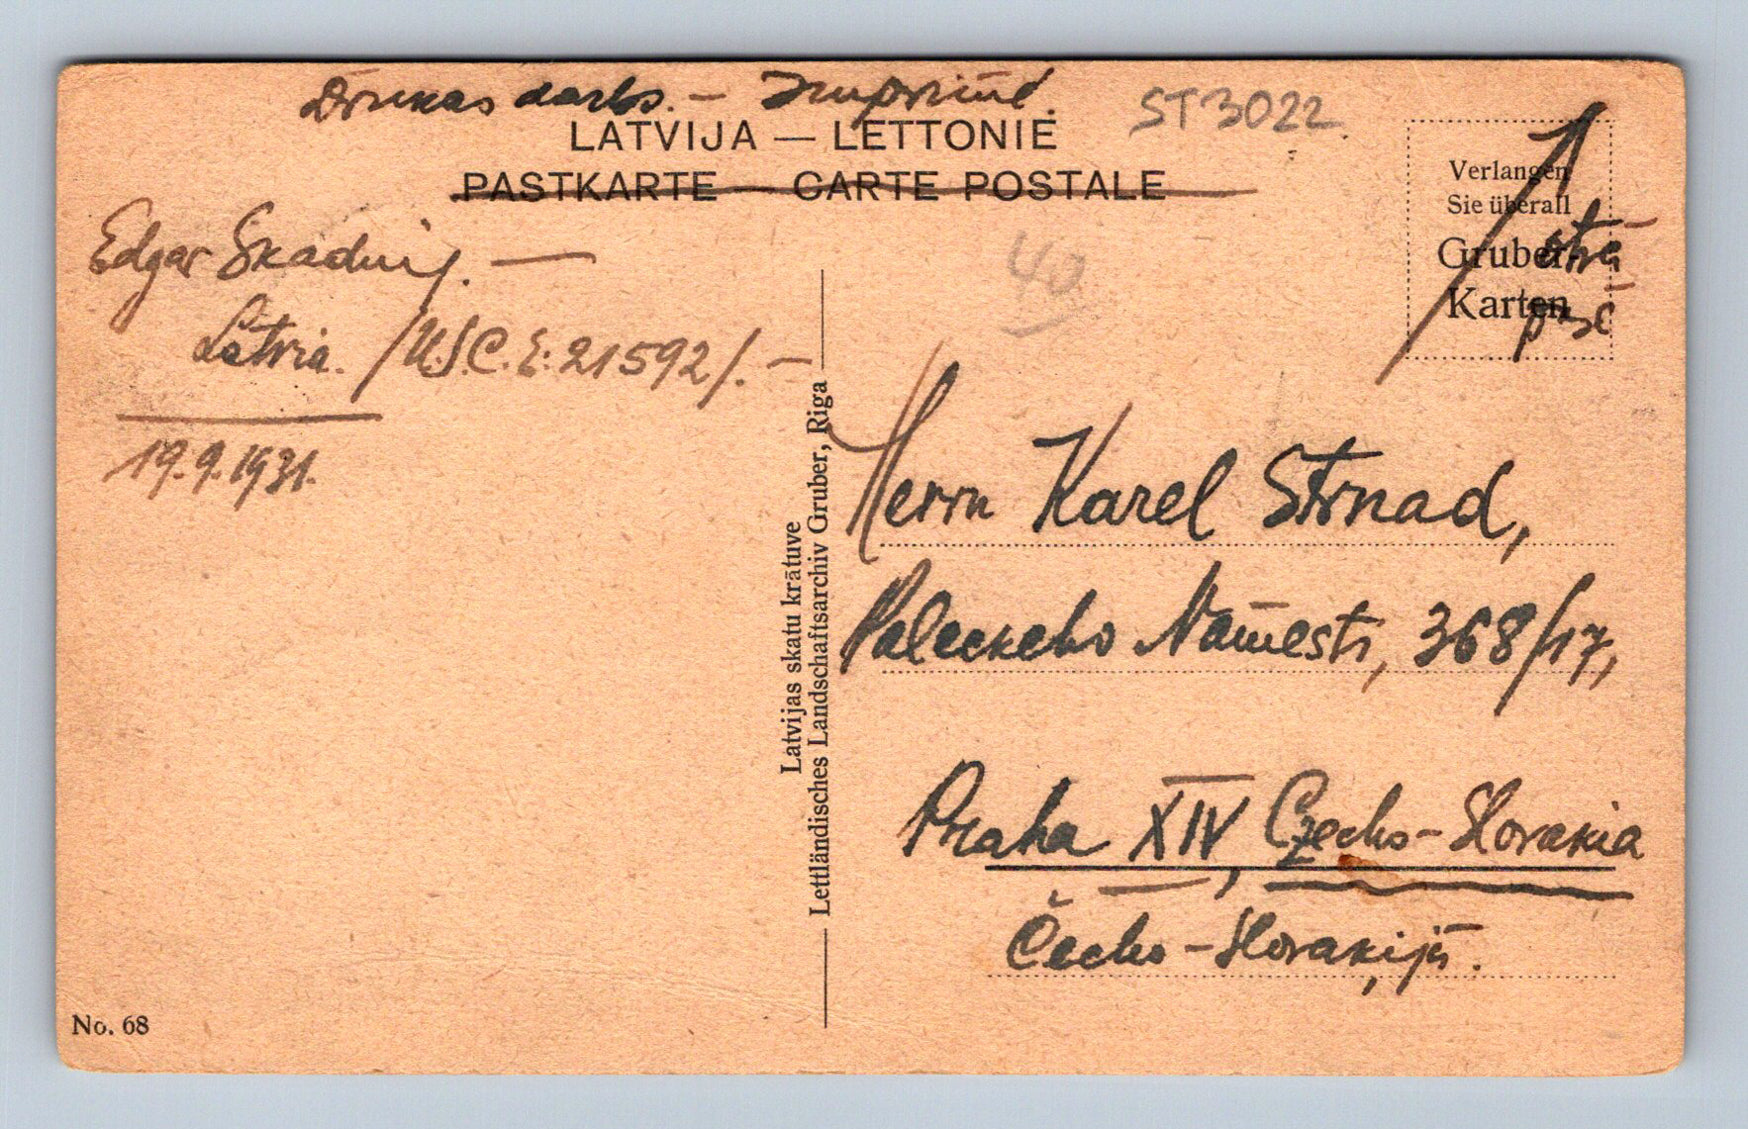 Drukas darbs. — Imprimé.
ST3022
LATVIJA — LETTONIE
PASTKARTE — CARTE POSTALE
Verlangen
Sie überall
Gruber-
Karten
Edgar
Latvia. /U.S.C.E: 21592/. —
19.9.1931.
40
Latvijas skatu krātuve
Lettländisches Landschaftsarchiv Gruber, Riga
Herrn Karel Strnad,
Paleckeho Námesti, 368/17,
Praha XIV, Czecho-Slovakia
Čecho-Slovaķijā.
No. 68